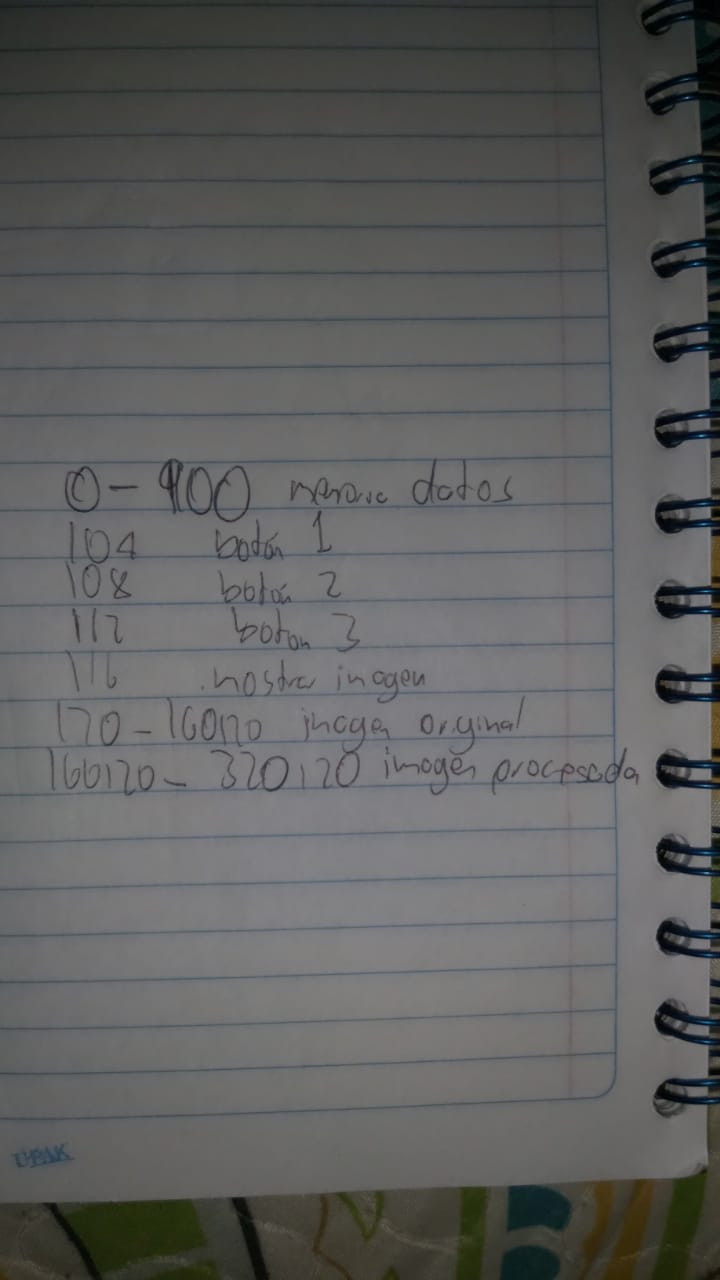 0 - 100 memoria datos
104 botón 1
108 botón 2
112 boton 3
116 mostrar imagen
120 - 160120 imagen original
160120 - 320120 imagen procesada